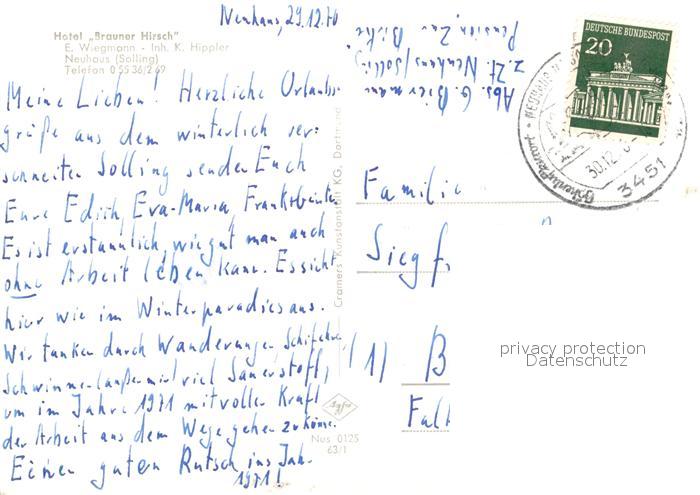 Neuhaus, 29.12.70
Hotel „Brauner Hirsch"
E. Wiegmann - Inh. K. Hippler
Neuhaus (Solling)
Telefon 0 55 36/2 69
Meine Lieben! Herzliche Urlaubs-
grüße aus dem winterlich ver-
schneiten Solling senden Euch
Eure Edith, Eva-Maria, Frank
Es ist erstaunlich, wie gut man auch
ohne Arbeit leben kann. Es sieht
hier wie im Winterparadies aus.
Wir tanken durch Wanderungen, Schifahren
Schwimmen viel Sauerstoff,
um im Jahre 1971 mit voller Kraft
der Arbeit aus dem Wege gehen zu können.
Einen guten Rutsch ins Jah-
1971!
Abs. G. Biermann
z. Zt. Neuhaus/Solling
Pension Zur
DEUTSCHE BUNDESPOST
20
NEUHAUS
30.12.
3451
Cramers Kunstanstalt KG, Dortmund
Agfa
Nus 0125
63/1
Familie
Siegf
(1) B
Fall
privacy protection
Datenschutz